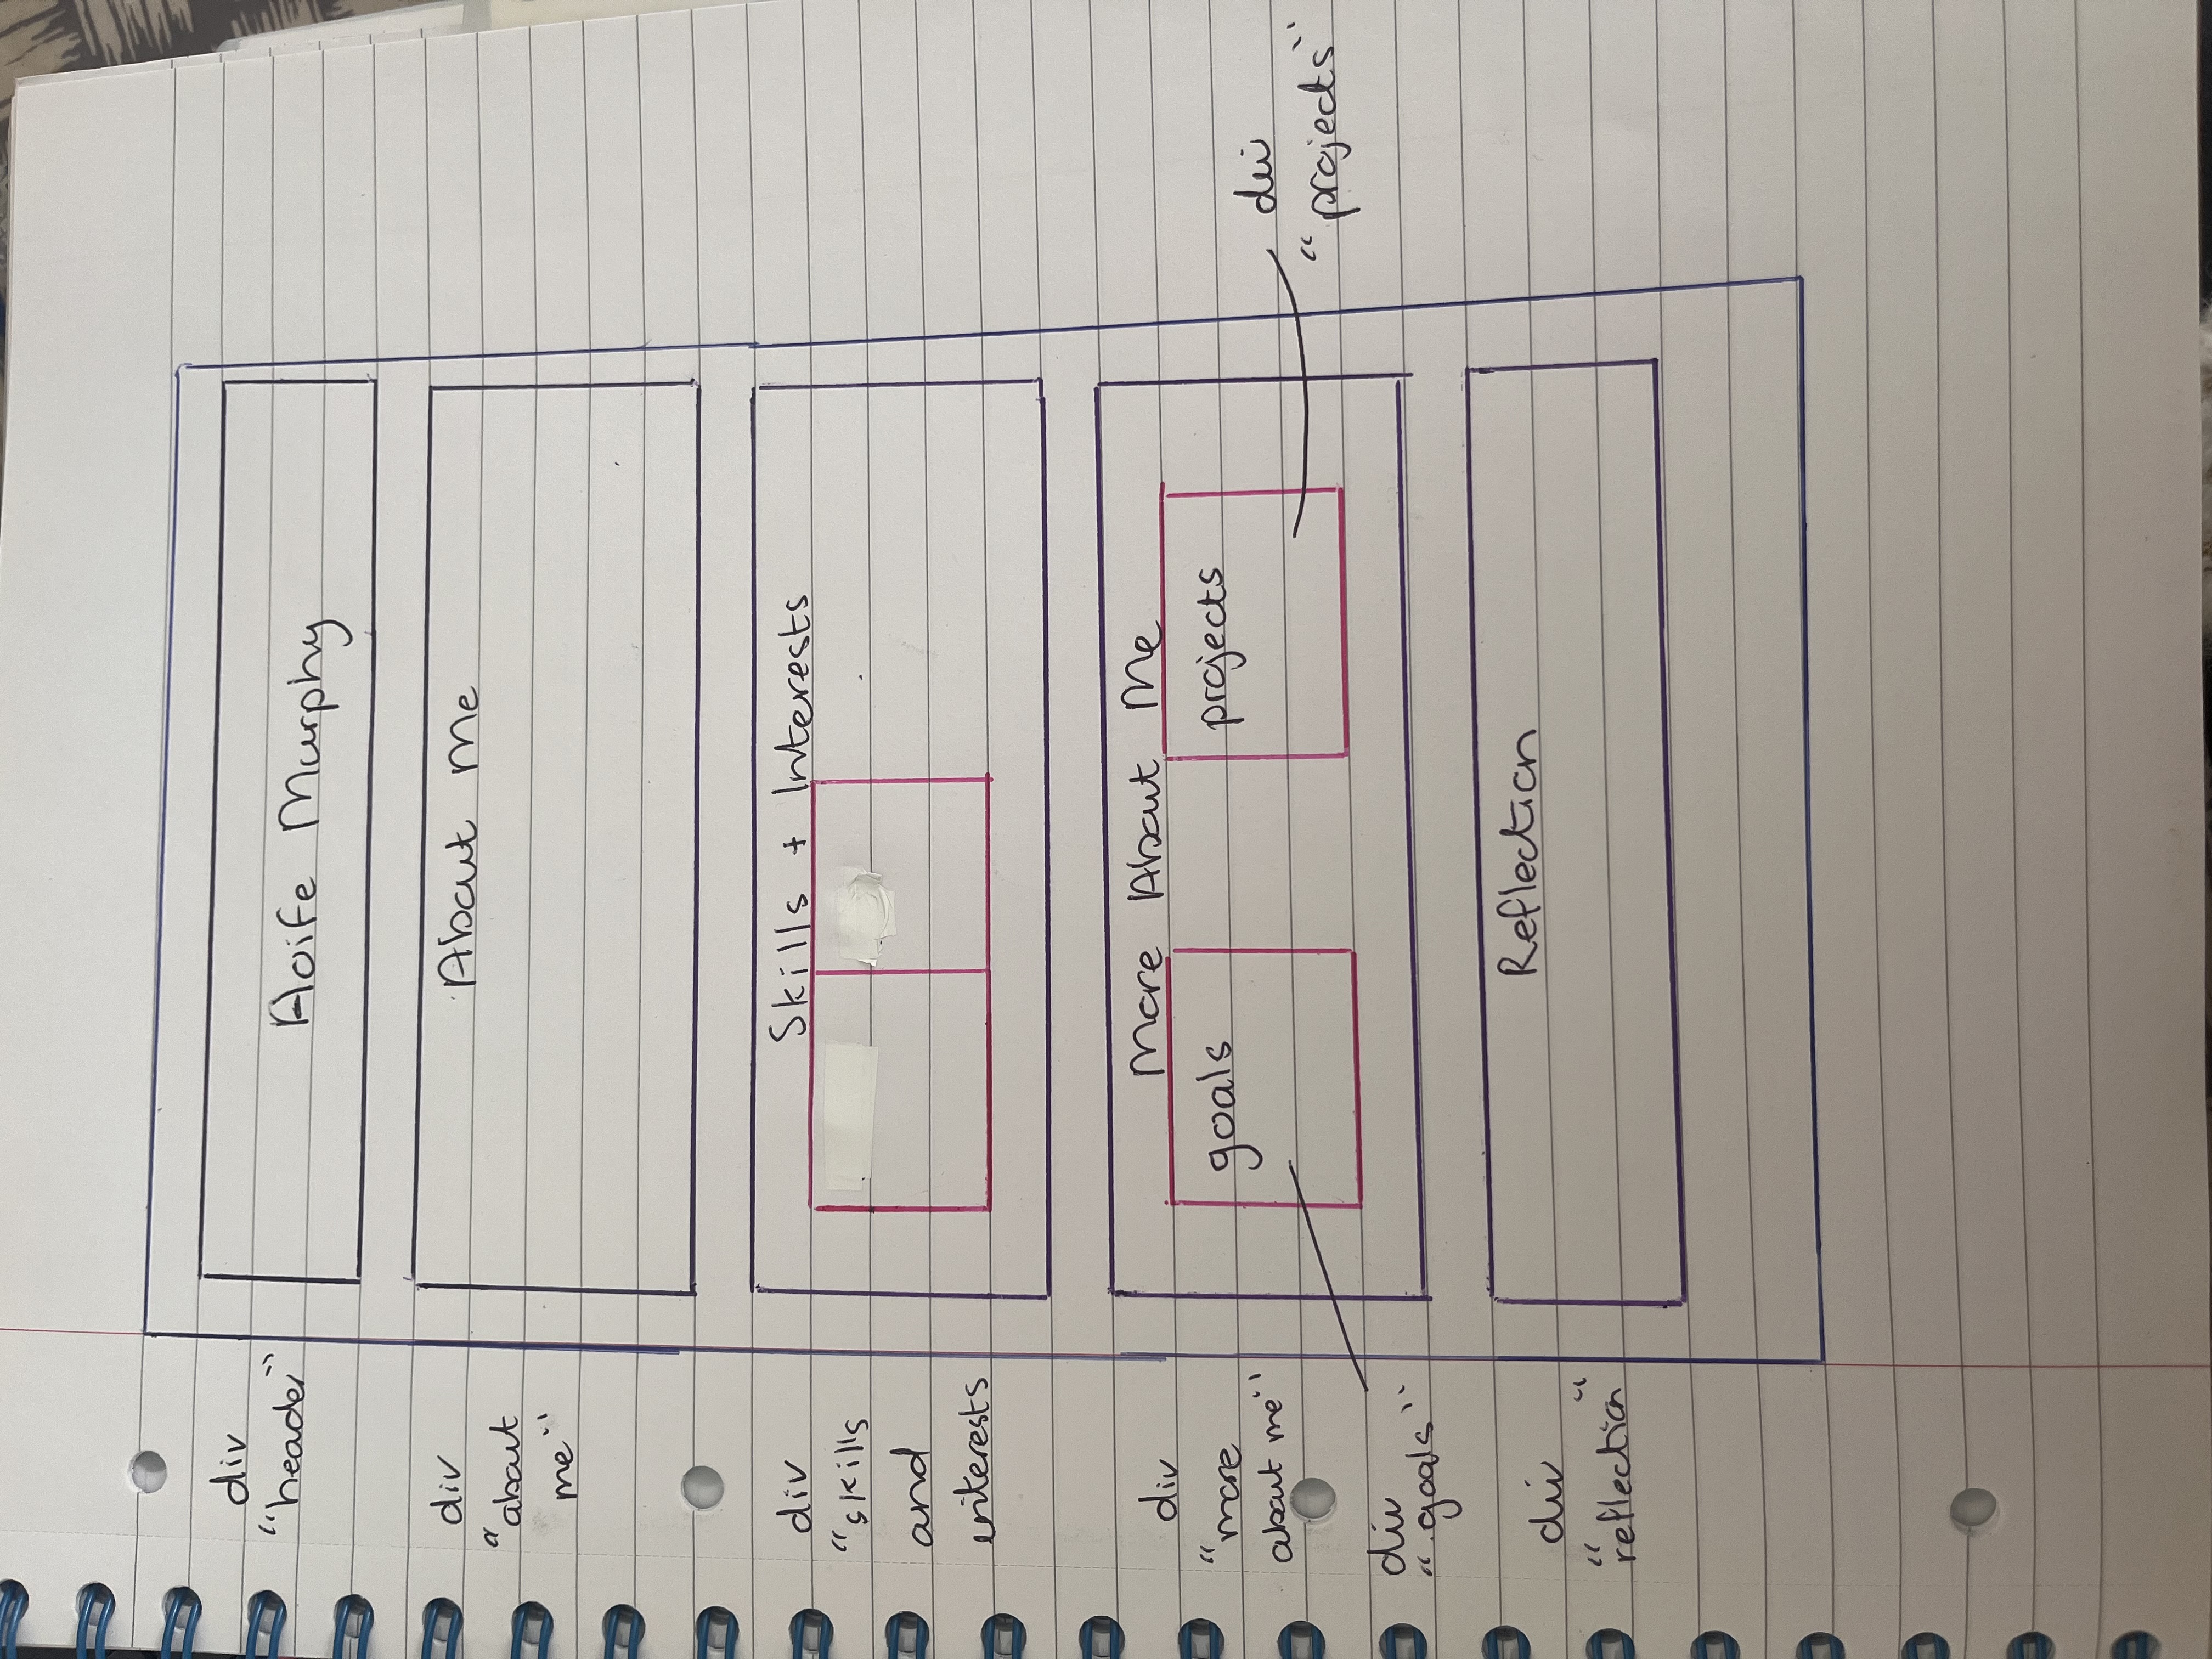 div
“header”
Aoife Murphy
div
“about
me”
About Me
div
“skills
and
interests
Skills + Interests
div
“more
about me”
More About Me
goals
projects
div
“projects”
div
“goals”
div
“reflection“
Reflection